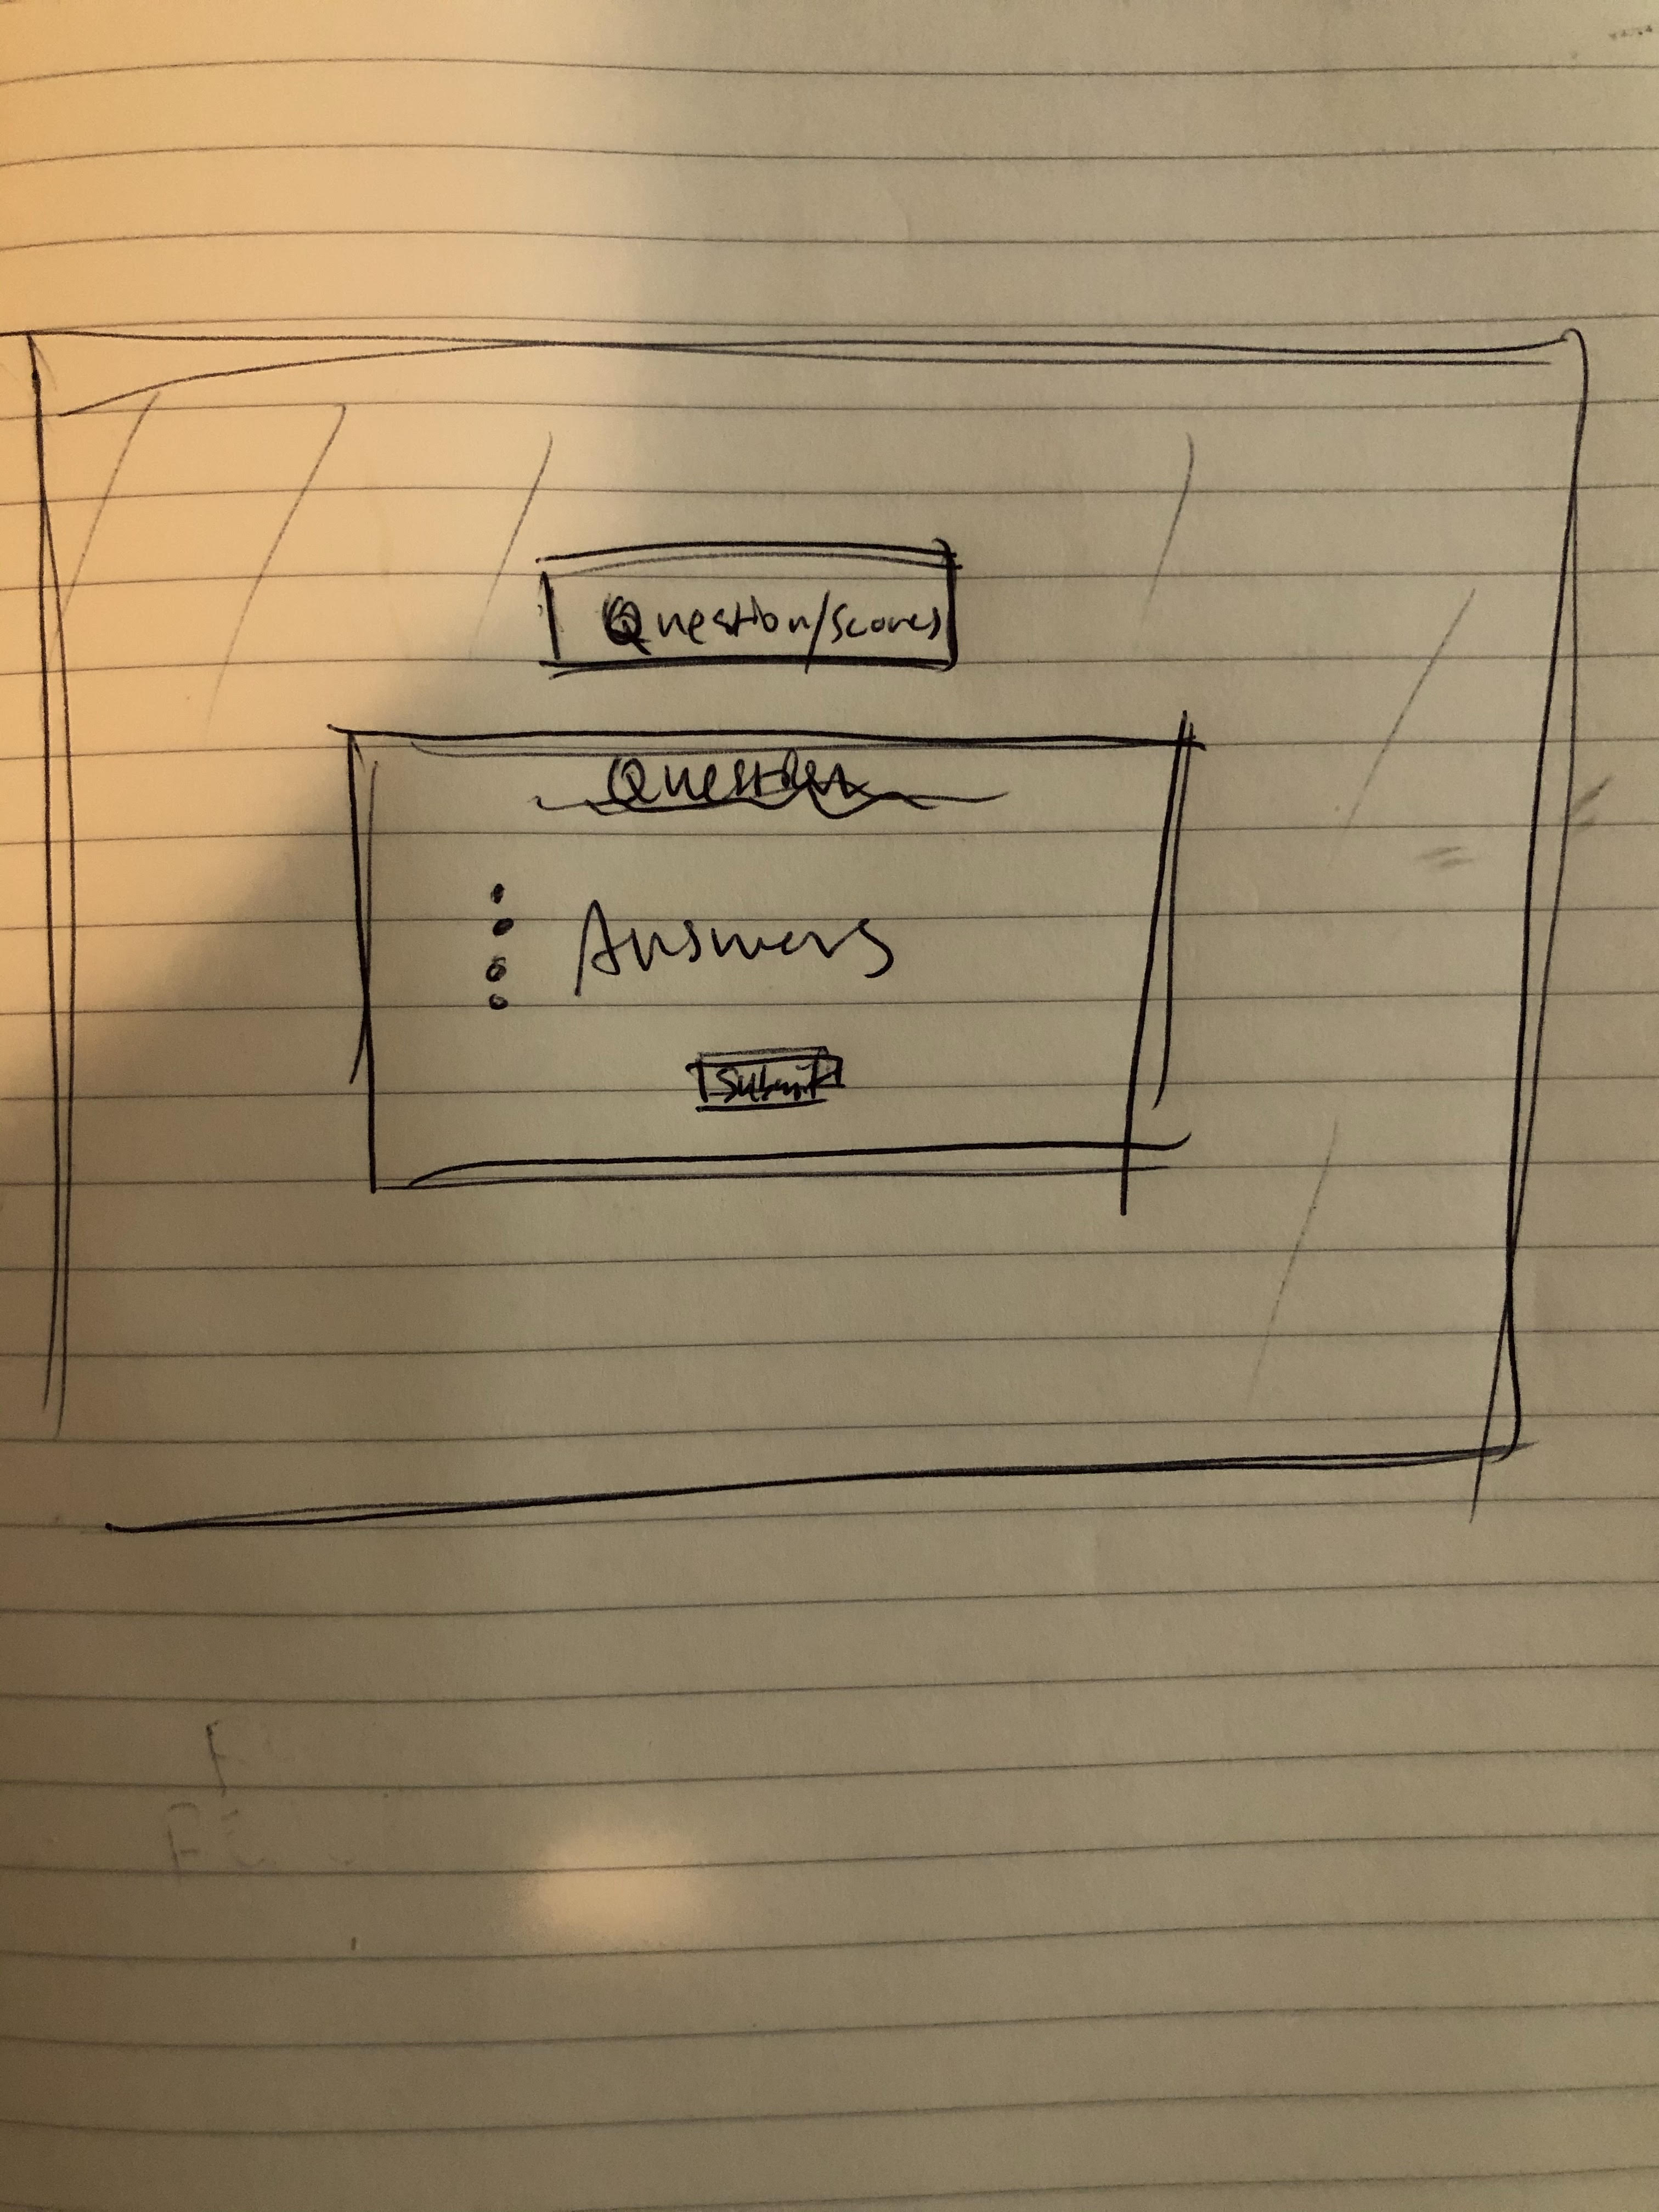 Question/scores
Question
Answers
Submit